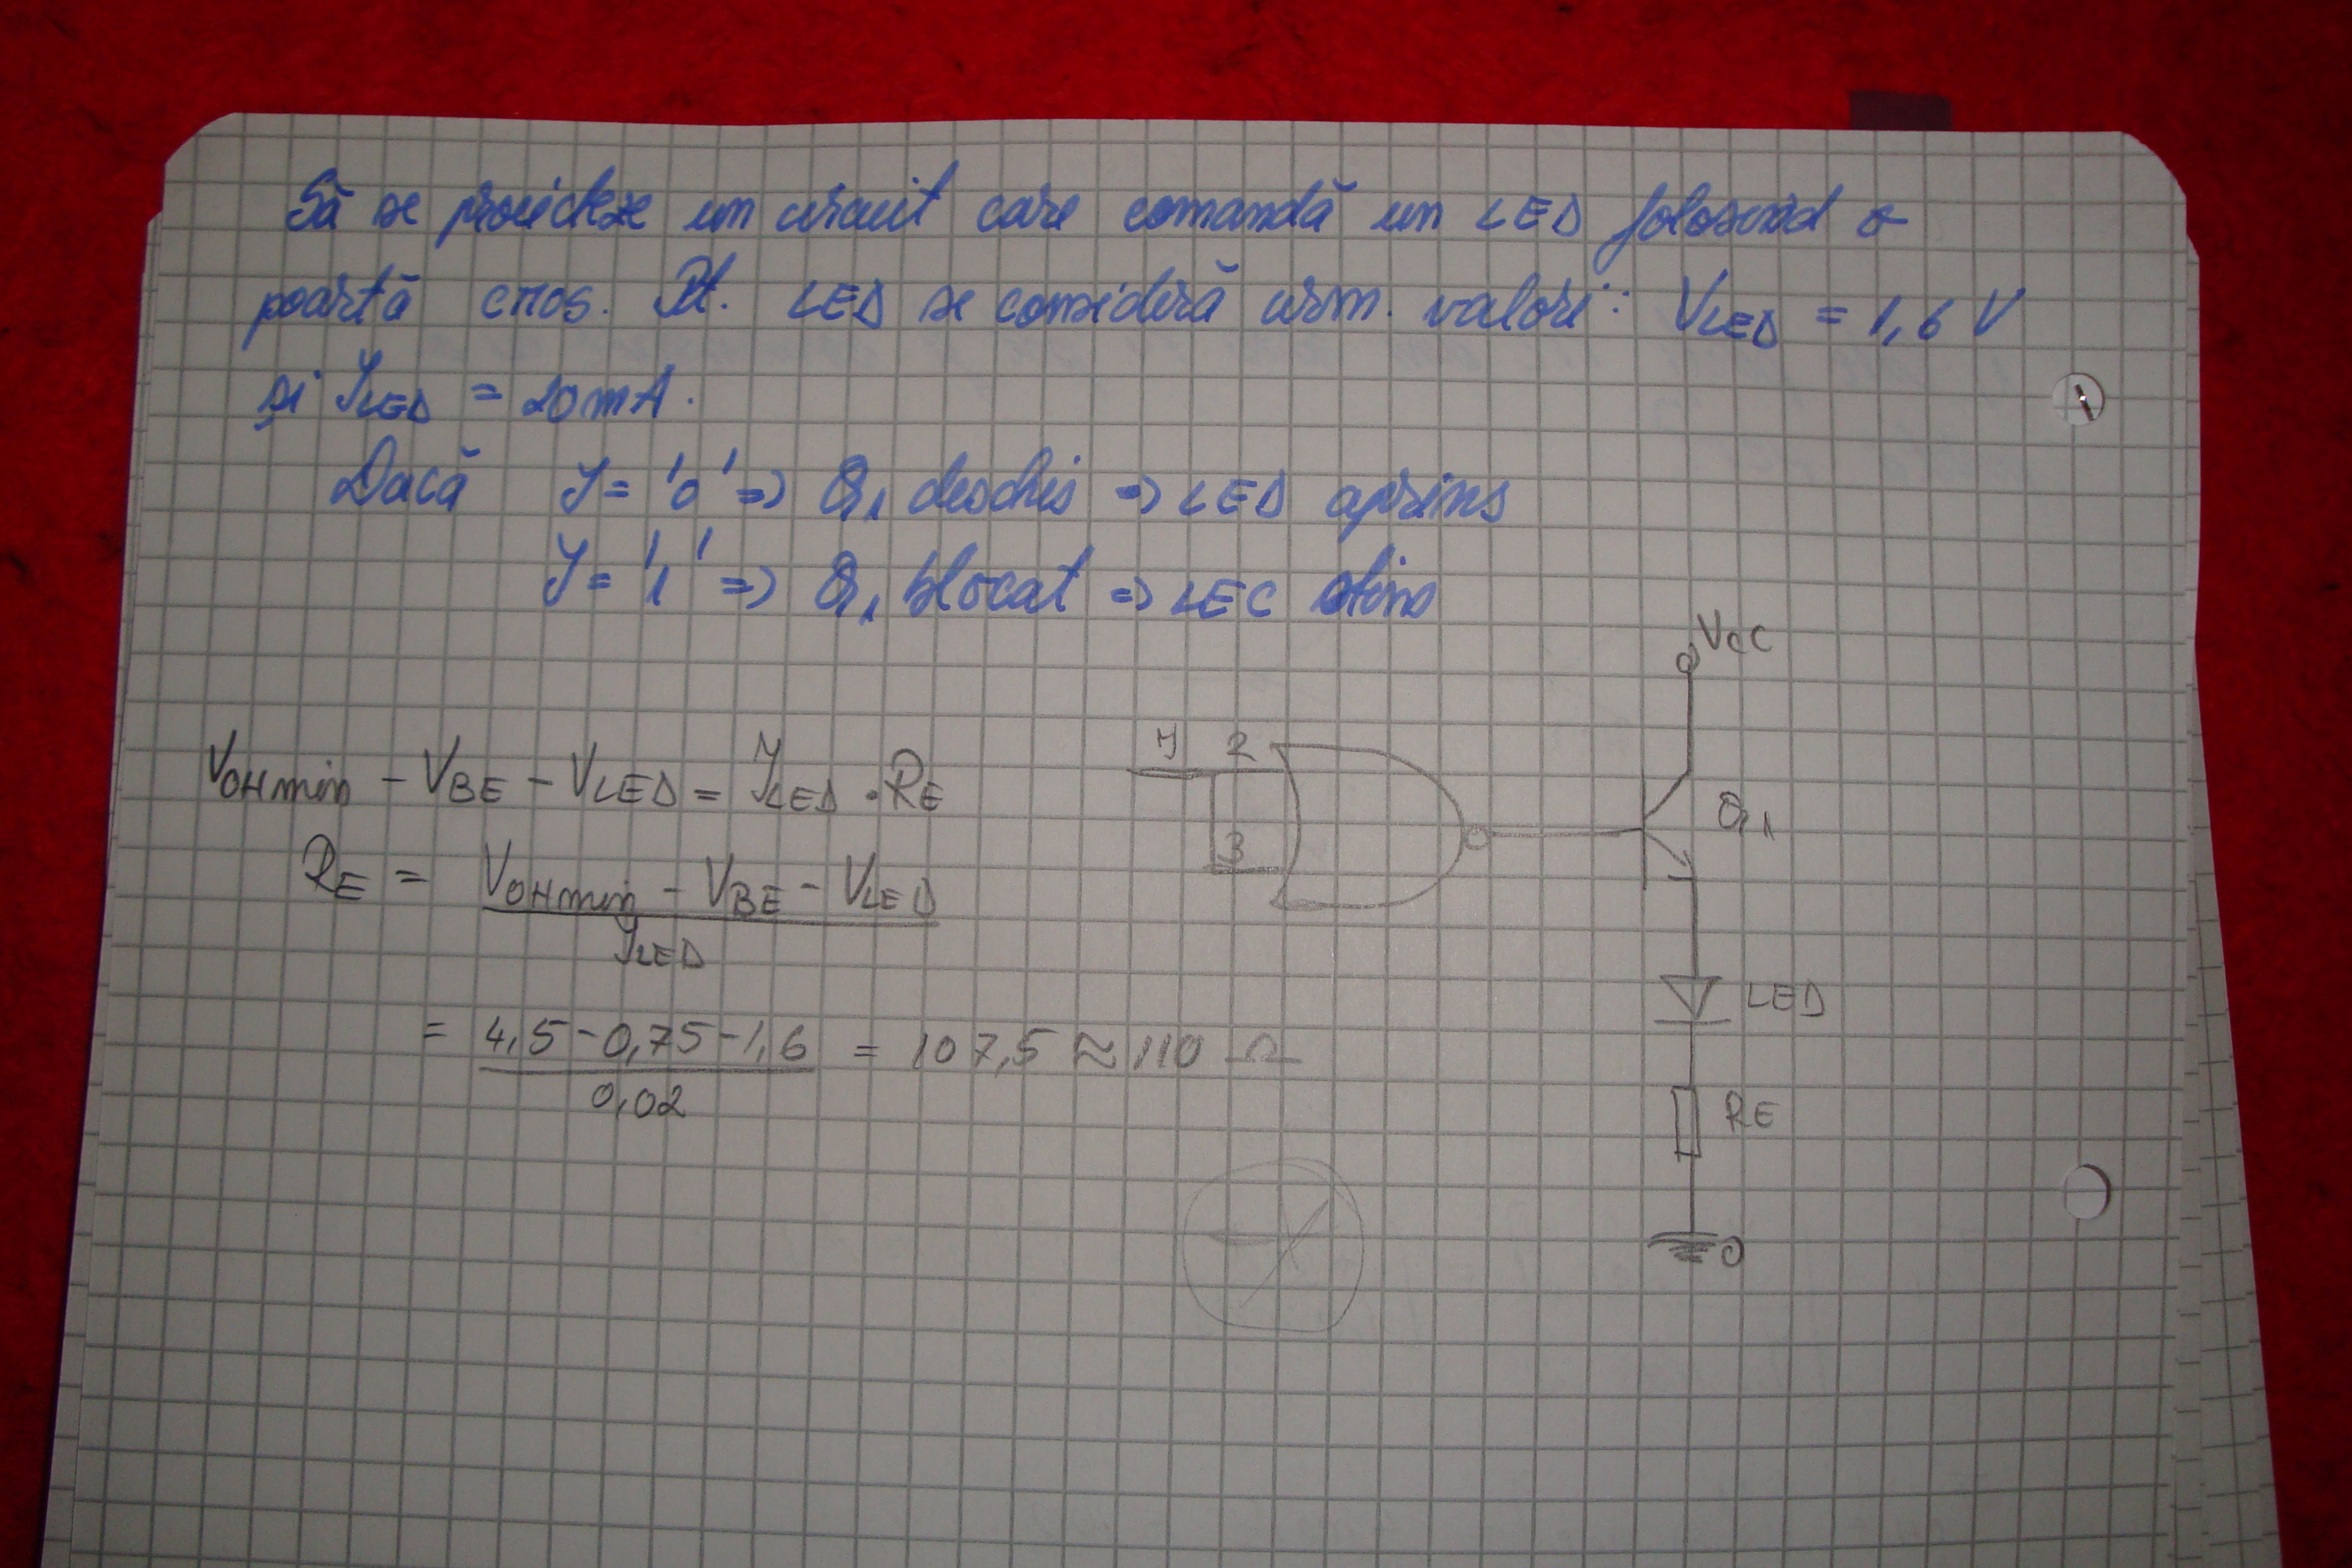 Să se proiecteze un circuit care comandă un LED folosind o
poartă CMOS. Pt. LED se consideră urm. valori: VLED = 1,6 V
și ILED = 20mA.
Dacă Y = '0' => Q1 deschis => LED aprins
Y = '1' => Q1 blocat => LEC stins
VCC
VOHmin - VBE - VLED = ILED · RE
Y 2
3
Q1
RE = VOHmin - VBE - VLED
ILED
LED
= 4,5 - 0,75 - 1,6 = 107,5 ≈ 110 Ω
0,02
RE
0